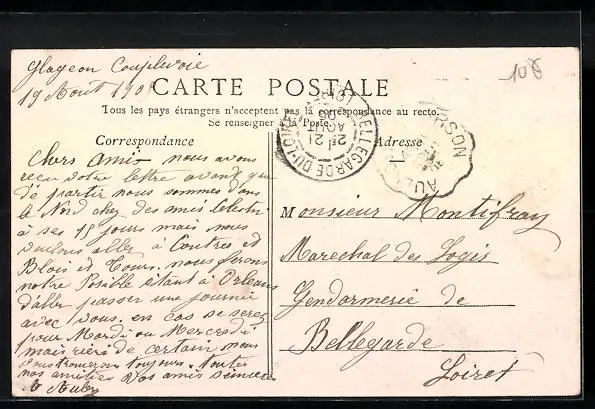 Glageon Couplevoie
19 Aout 190
108
CARTE POSTALE
Tous les pays étrangers n'acceptent pas la correspondance au recto.
Se renseigner à la Poste.
Correspondance
Adresse
BELLEGARDE-DU-LOIRET
21
AOUT
Chers Amis nous avons
reçu votre lettre avant que
de partir nous sommes dans
le Nord chez des amis
à ses 15 jours mais nous
voulons aller à Contres et
Blois et Tours. nous ferons
notre Posible étant à Orleans
d'aller passer une journée
avec vous. en cas se serez
pour Mardi ou Mercredi
mais rière de certain nous
vous trouverons toujours. toutes
nos amitiées Vos amis sincères
Monsieur Montifray
Marechal des Logis
Gendarmerie de
Bellegarde
Loiret